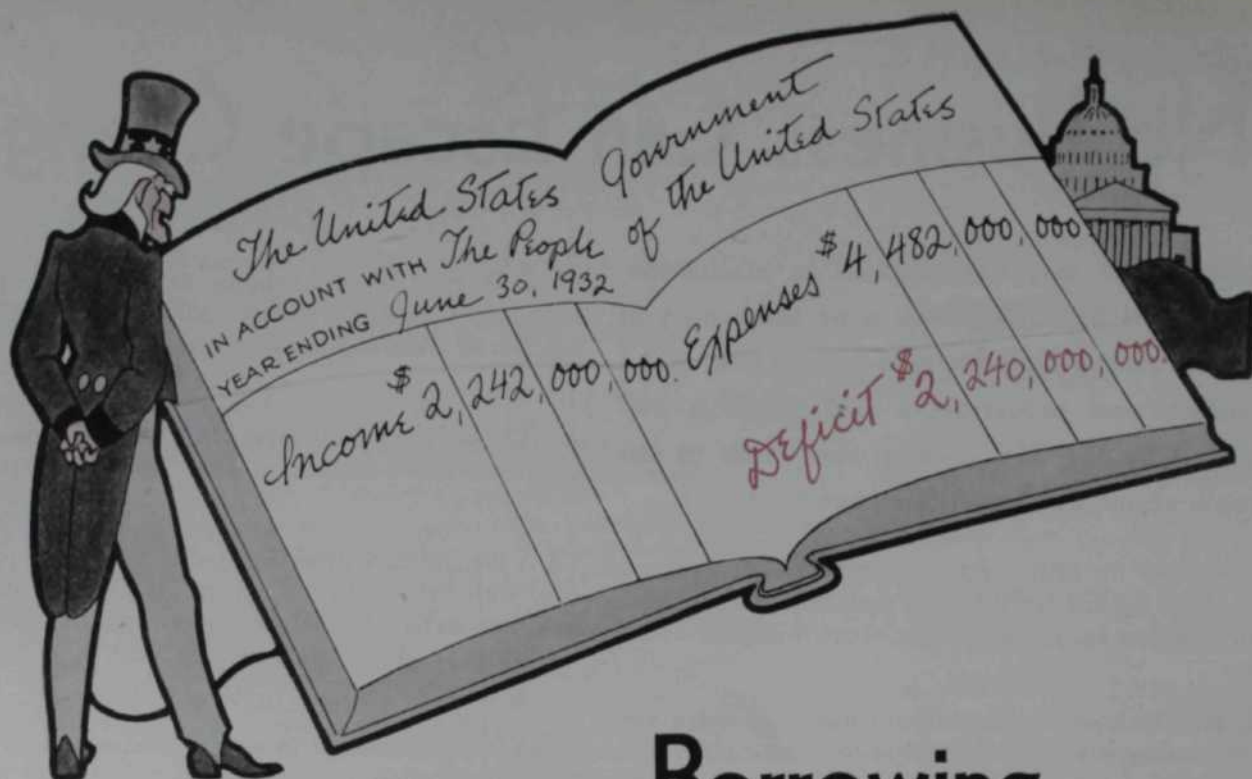 The United States Government
IN ACCOUNT WITH The People of the United States
YEAR ENDING June 30, 1932
Income $2,242,000,000.
Expenses $4,482,000,000
Deficit $2,240,000,000.
Borrowing